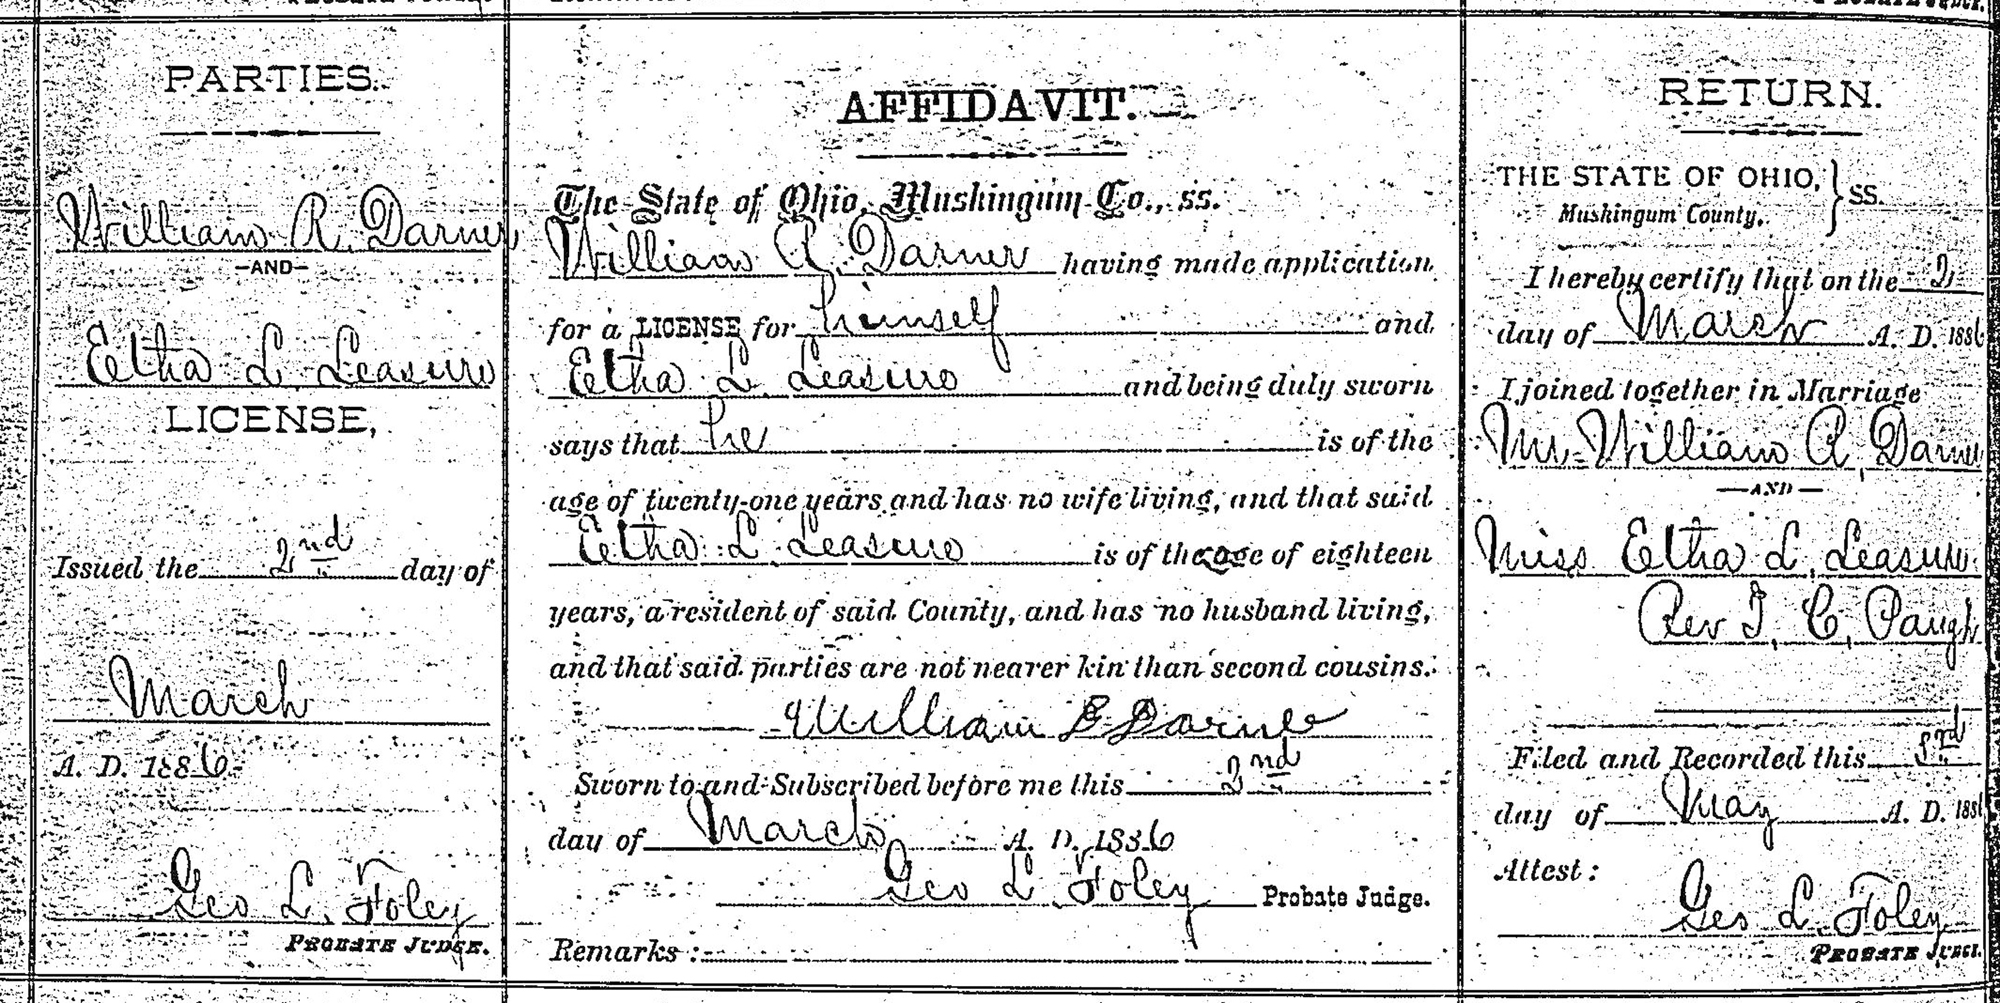 PARTIES.
William R. Darner
—AND—
Etha L. Leasure
LICENSE,
Issued the 2nd day of
March
A. D. 1886
Geo L. Foley
PROBATE JUDGE.
AFFIDAVIT.
The State of Ohio, Muskingum Co., ss.
William R. Darner having made application
for a LICENSE for himself and
Etha L. Leasure and being duly sworn
says that he is of the
age of twenty-one years and has no wife living, and that said
Etha L. Leasure is of the age of eighteen
years, a resident of said County, and has no husband living,
and that said parties are not nearer kin than second cousins.
William Darner
Sworn to and Subscribed before me this 2nd
day of March A. D. 1886
Geo L. Foley Probate Judge.
Remarks:
RETURN.
THE STATE OF OHIO, } SS.
Muskingum County,
I hereby certify that on the 2
day of March A. D. 1886
I joined together in Marriage
Mr. William R. Darner
—AND—
Miss Etha L. Leasure
Rev. T. C. Paugh
Filed and Recorded this 3rd
day of May A. D. 1886
Attest:
Geo L. Foley
PROBATE JUDGE.